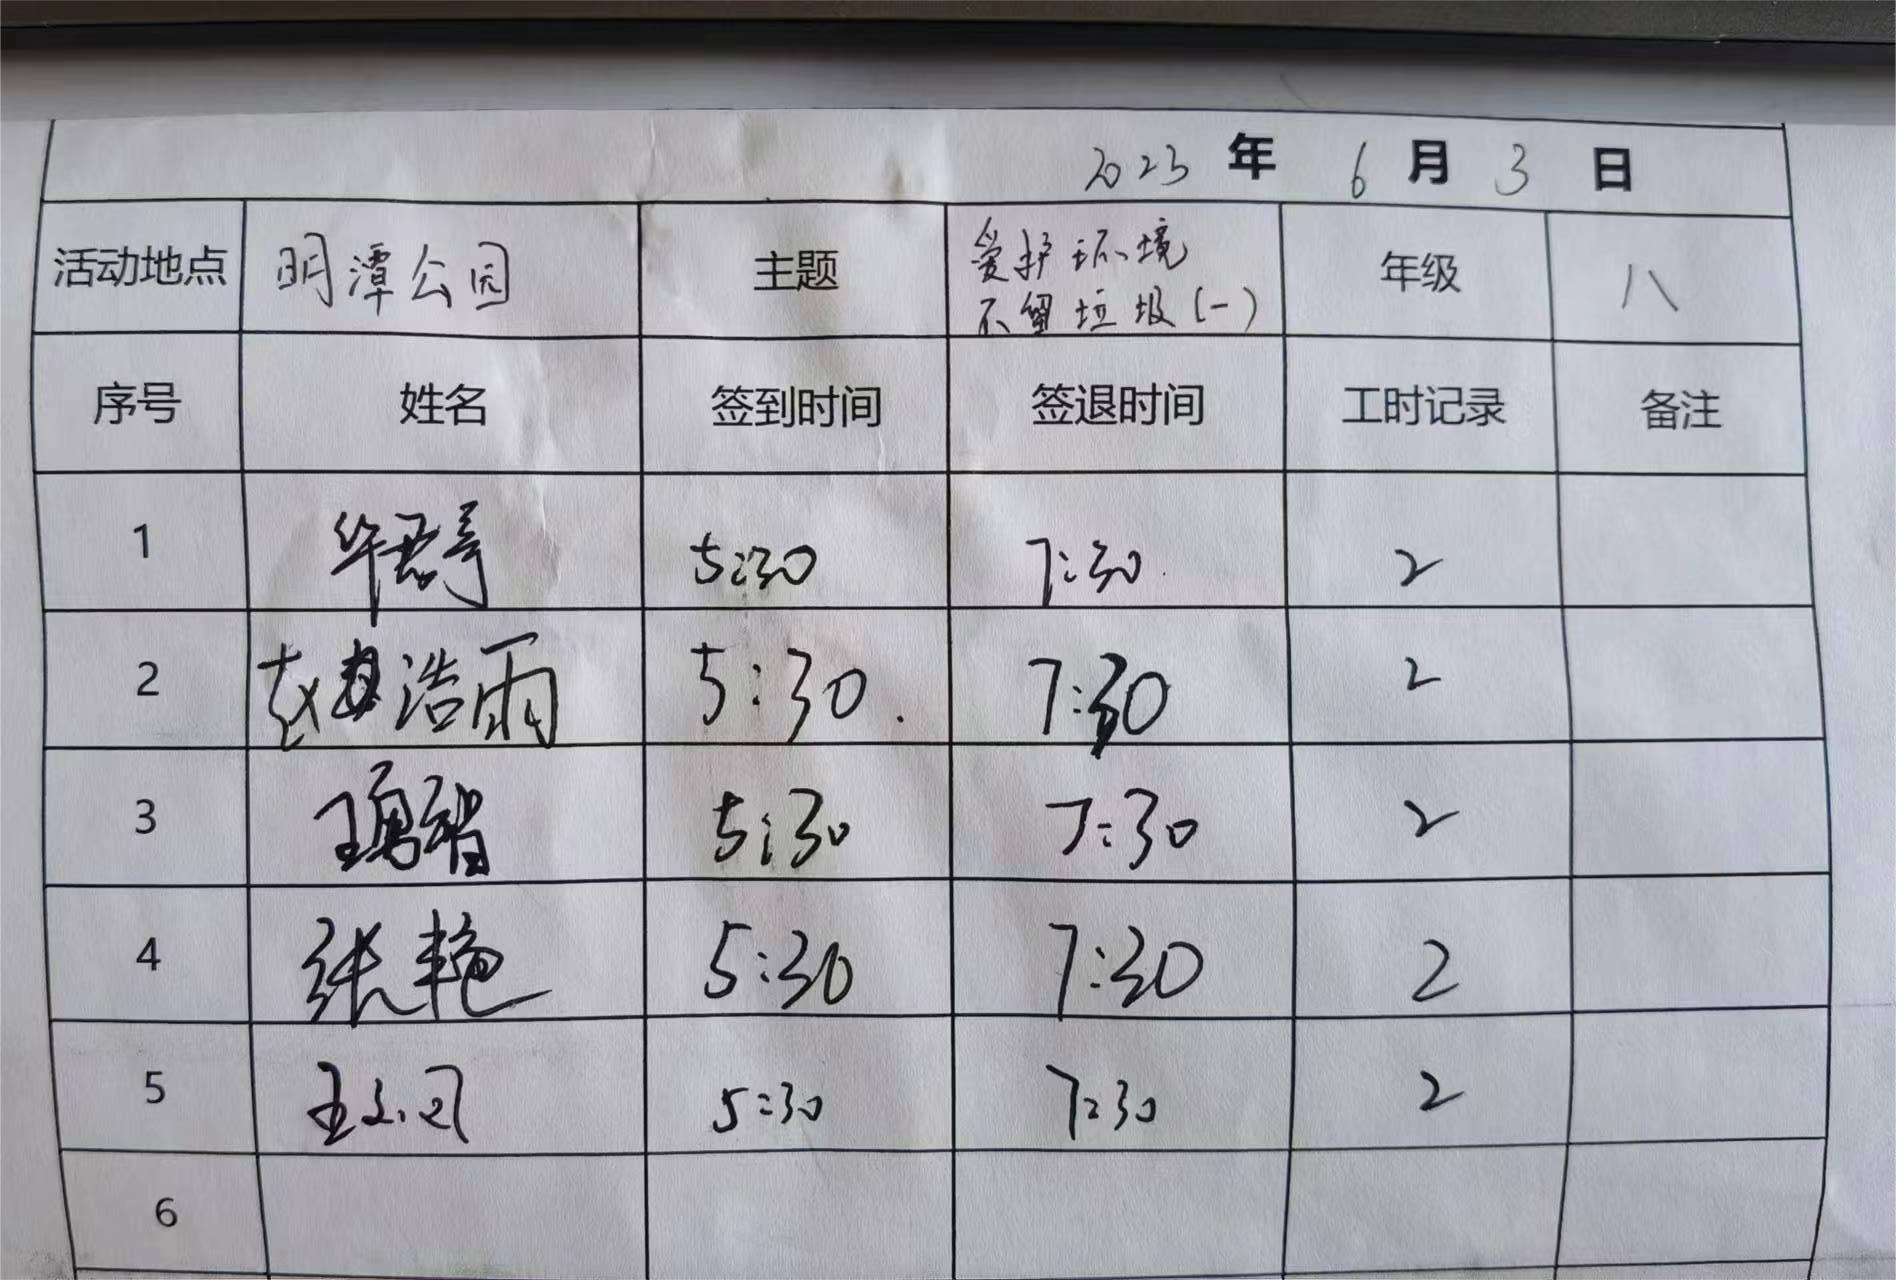 2023 年 6 月 3 日
活动地点 明潭公园 主题 爱护环境 不留垃圾(一) 年级 八
序号 姓名 签到时间 签退时间 工时记录 备注
1 5:30 7:30 2
2 赵浩雨 5:30 7:30 2
3 王勇智 5:30 7:30 2
4 张艳 5:30 7:30 2
5 王 5:30 7:30 2
6